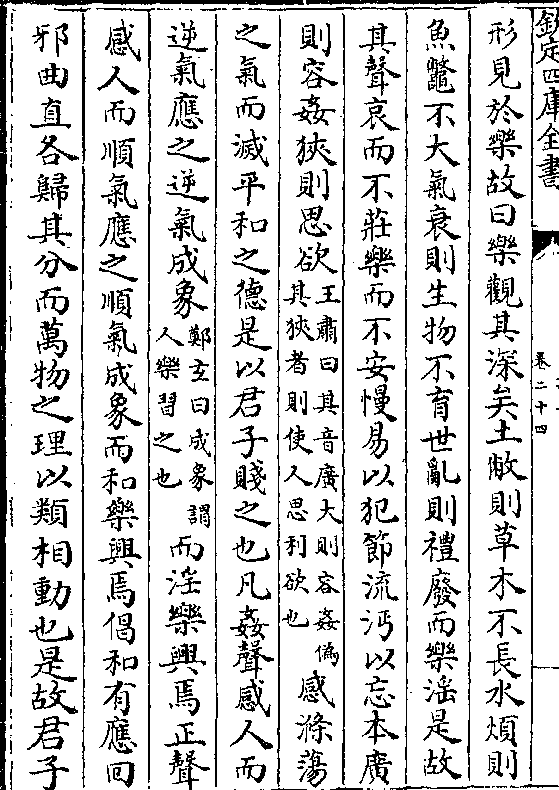 欽定四庫全書
卷二十四
形見於樂故曰樂觀其深矣土敝則草木不長水煩則
魚鼈不大氣衰則生物不育世亂則禮廢而樂淫是故
其聲哀而不莊樂而不安慢易以犯節流沔以忘本廣
則容姦狹則思欲王肅曰其音廣大則容姦偽其狹者則使人思利欲也感滌蕩
之氣而滅平和之德是以君子賤之也凡姦聲感人而
逆氣應之逆氣成象鄭玄曰成象謂人樂習之也而淫樂興焉正聲
感人而順氣應之順氣成象而和樂興焉倡和有應回
邪曲直各歸其分而萬物之理以類相動也是故君子